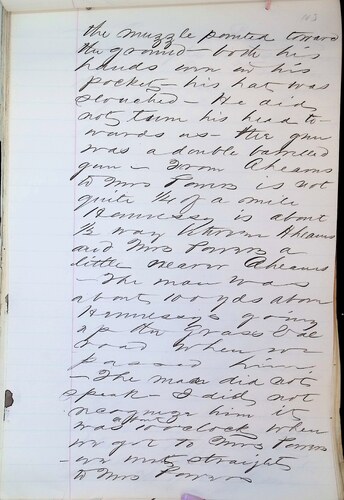 103
the muzzle pointed toward
the ground - both his
hands were in his
pocket - his hat was
slouched - He did
not turn his head to-
wards us - the gun
was a double barreled
gun - From Aherns
to Mrs Powers is not
quite 1/4 of a mile
Hennessy is about
1/2 way between Aherns
and Mrs Powers a
little nearer Aherns
- The man was
about 100 yds above
Hennessy's going
up the Grass
road when we
passed him,
- The man did not
speak - I did not
recognize him it
was about o'clock when
we got to Mrs Powers
- we went straight
to Mrs Powers